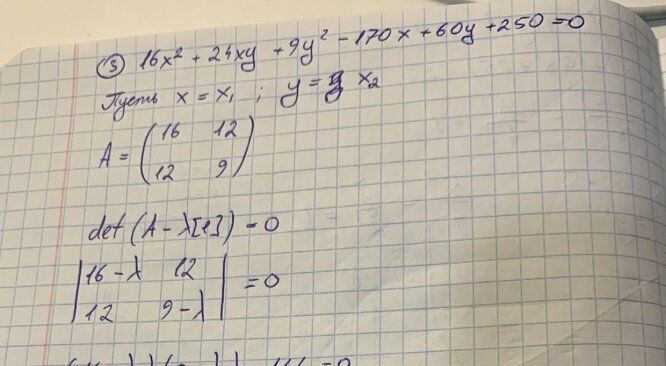 ③ 16x² + 24xy + 9y² - 170x + 60y + 250 = 0
Пусть x = x₁ ; y = x₂
A = (16 12
12 9)
det (A - λ[1]) = 0
|16 - λ 12| = 0
|12 9 - λ|